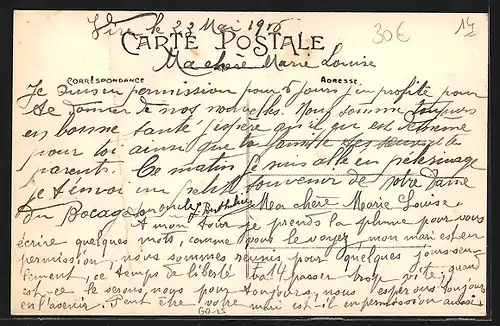 Vire le 22 Mai 1916
30€
CARTE POSTALE
Ma chère Marie Louise
CORRESPONDANCE
ADRESSE
Je suis en permission pour 6 jours j'en profite pour
te donner de nos nouvelles. Nous somme toujours
en bonne santé j'espère qu'il que est de meme
pour toi ainsi que la famille
parents. Ce matin je suis allé en pelerinage
je t'envoi un petit souvenir de Notre Dame
du Bocage
Ma chère Marie Louise
A mon tour je prends la plume pour vous
écrire quelques mots, comme vous le voyez, mon mari est en
permission, nous sommes réunis pour quelques jours seu-
lement, ce temps de liberté va passer trop vite, quand
est-ce le serons nous pour toujours, nous espérons toujours
en l'avenir. Peut être votre mari est-il en permission aussi